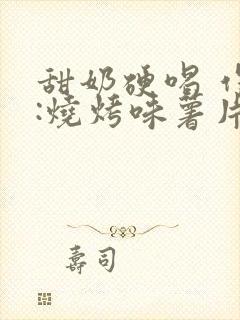 甜奶硬唱
:燒烤味薯片
壽司